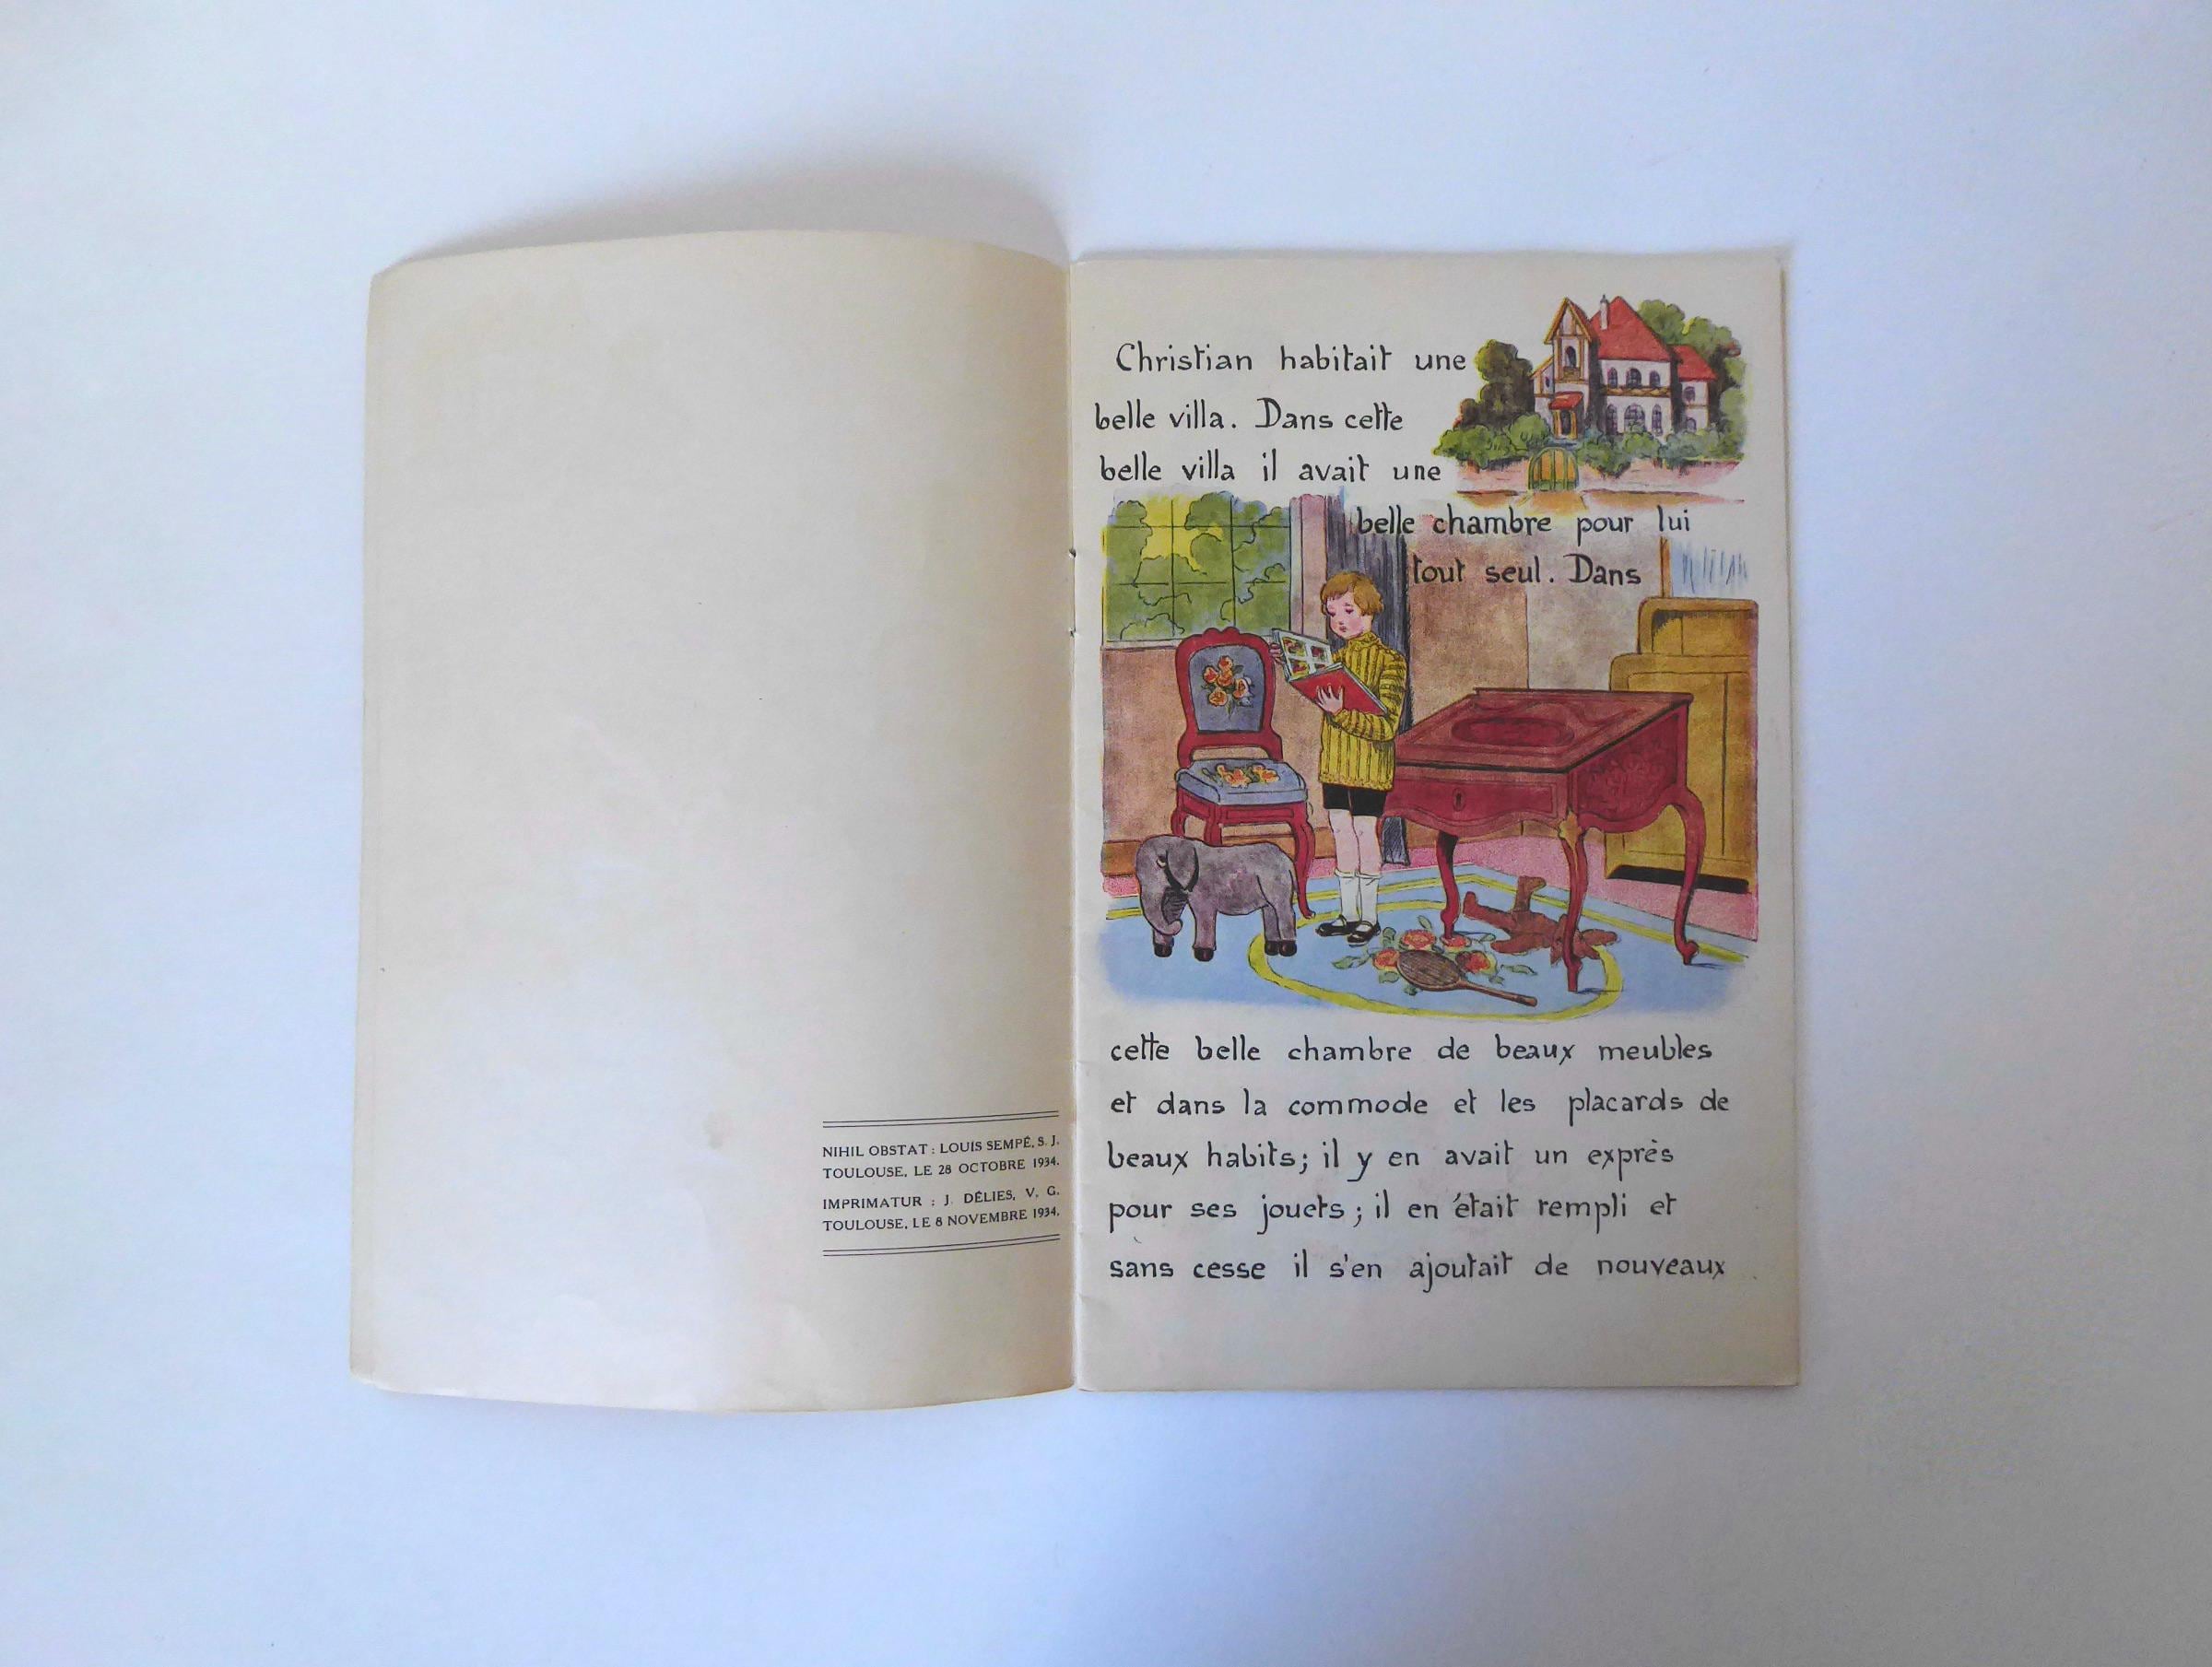 NIHIL OBSTAT : LOUIS SEMPÉ, S. J.
TOULOUSE, LE 28 OCTOBRE 1934.
IMPRIMATUR : J. DÉLIES, V. G.
TOULOUSE, LE 8 NOVEMBRE 1934.
Christian habitait une
belle villa. Dans cette
belle villa il avait une
belle chambre pour lui
tout seul. Dans
cette belle chambre de beaux meubles
et dans la commode et les placards de
beaux habits; il y en avait un exprès
pour ses jouets; il en était rempli et
sans cesse il s'en ajoutait de nouveaux